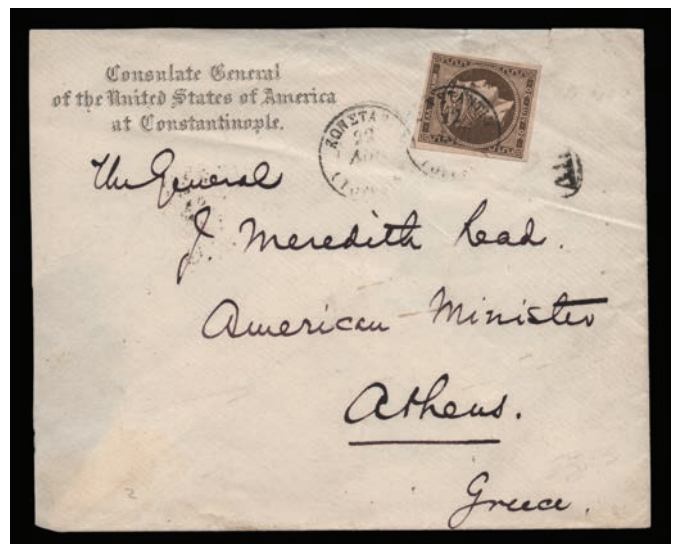 Consulate General
of the United States of America
at Constantinople.
The General
J. Meredith Read.
American Minister
Athens.
Greece.
22
2